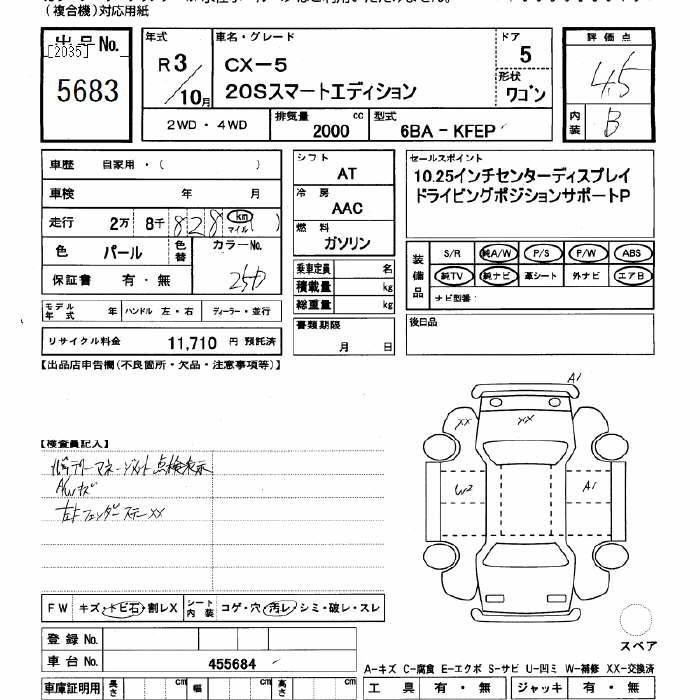 (複合機)対応用紙
出品No.
[2035]
5683
年式
R3/10月
車名・グレード
CX-5
20Sスマートエディション
ドア
5
形状
ワゴン
評価点
4.5
内装
B
2WD・4WD
排気量
2000 cc
型式
6BA-KFEP
車歴 自家用・( )
車検 年 月
走行 2万 8千 828 km マイル ( )
色 パール 色替 カラーNo. 25D
保証書 有・無
モデル年式 年 ハンドル 左・右 ディーラー・並行
リサイクル料金 11,710 円 預託済
シフト
AT
冷房
AAC
燃料
ガソリン
乗車定員 名
積載量 kg
総重量 kg
書類期限
月 日
セールスポイント
10.25インチセンターディスプレイ
ドライビングポジションサポートP
装備品
S/R 純A/W P/S P/W ABS
純TV 純ナビ 革シート 外ナビ エアB
ナビ型番:
後日品
【出品店申告欄(不良箇所・欠品・注意事項等)】
【検査員記入】
バッテリーマネージメント点検表示
AWキズ
左Fフェンダーステー XX
A1
XX XX
W2 A1
スペア
FW キズ・トビ石・割レX シート内装 コゲ・穴・汚レ・シミ・破レ・スレ
登録No.
車台No. 455684
車庫証明用 長さ cm 幅 cm 高さ cm
A-キズ C-腐食 E-エクボ S-サビ U-凹ミ W-補修 XX-交換済
工具 有・無 ジャッキ 有・無